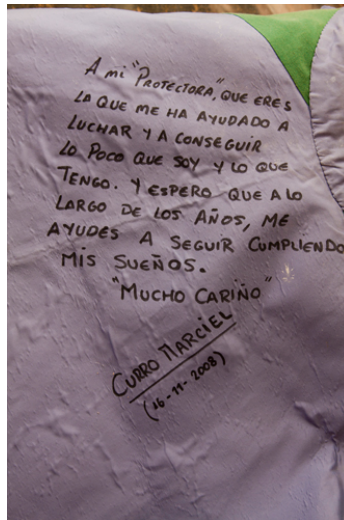 A mi "PROTECTORA," QUE ERES
LA QUE ME HA AYUDADO A
LUCHAR Y A CONSEGUIR
LO POCO QUE SOY Y LO QUE
TENGO. Y ESPERO QUE A LO
LARGO DE LOS AÑOS, ME
AYUDES A SEGUIR CUMPLIENDO
MIS SUEÑOS.
"MUCHO CARIÑO"
CURRO MARCIEL
(16-11-2008)